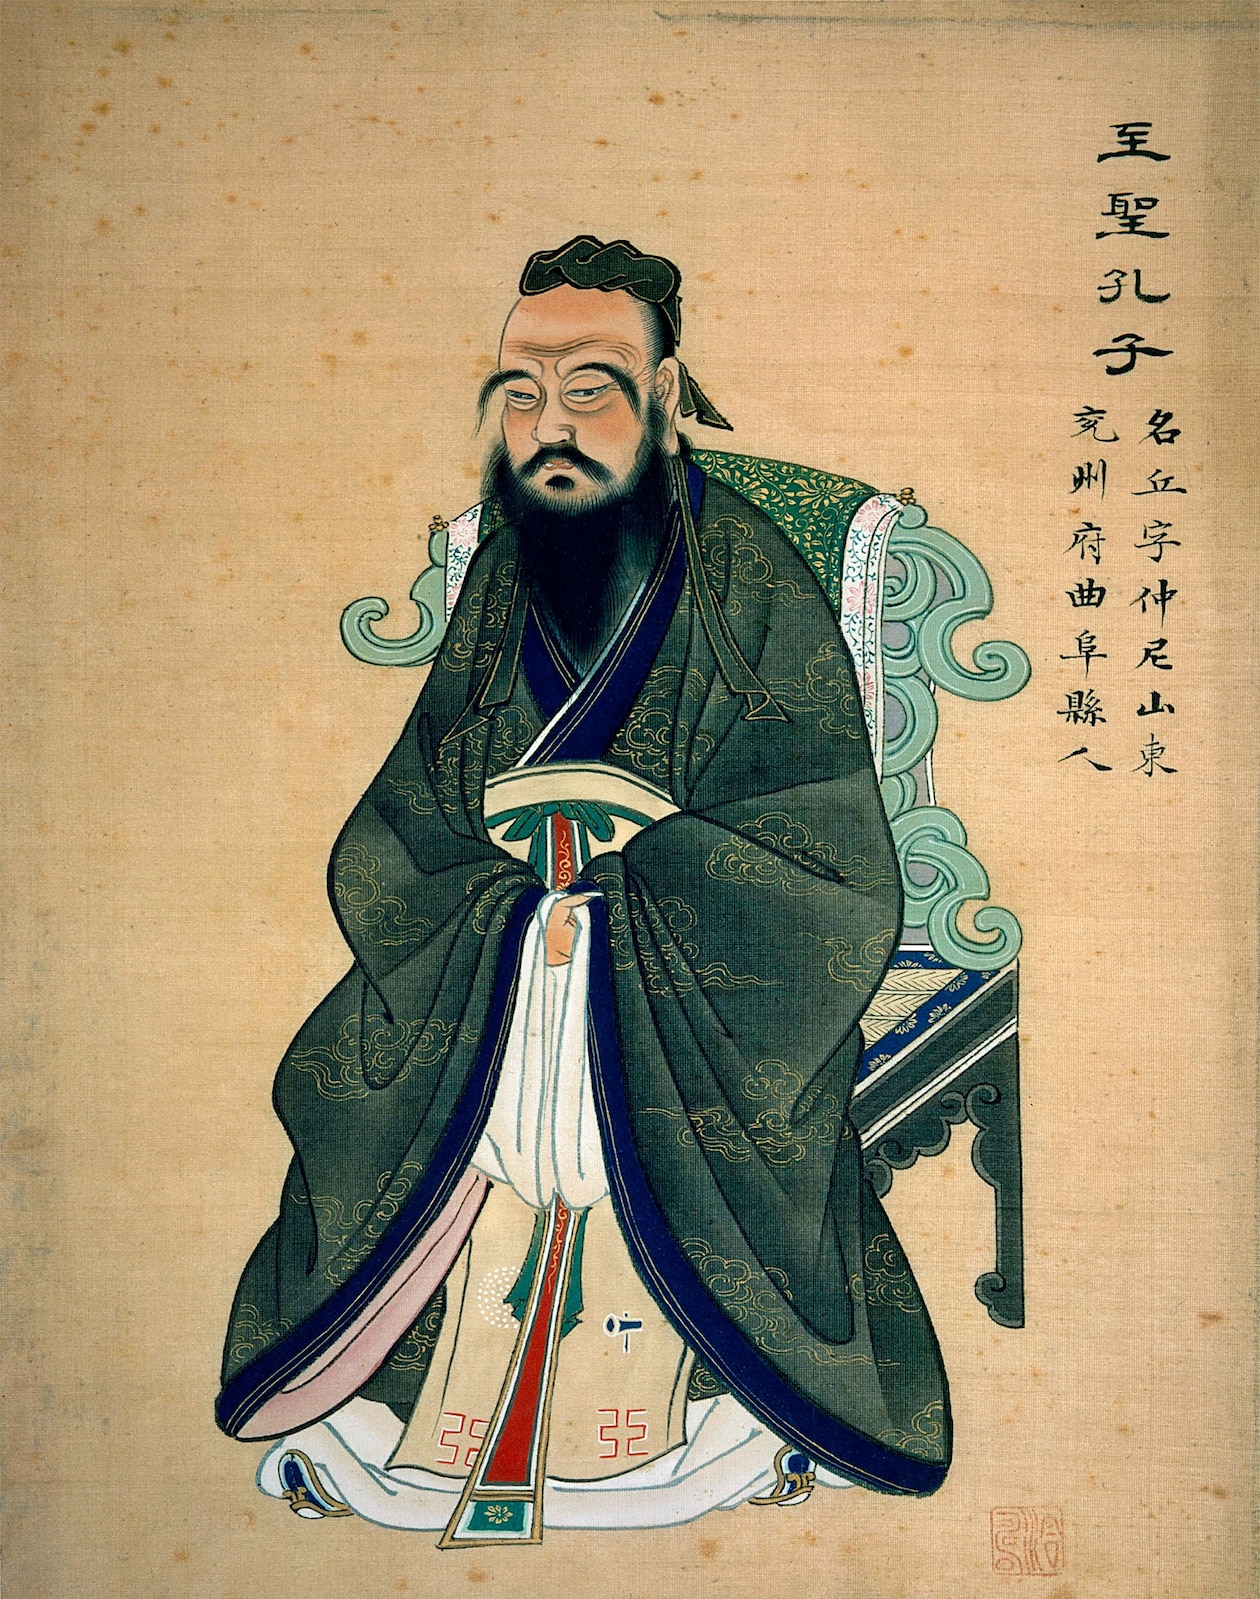 至聖孔子
名丘字仲尼山東
兖州府曲阜縣人